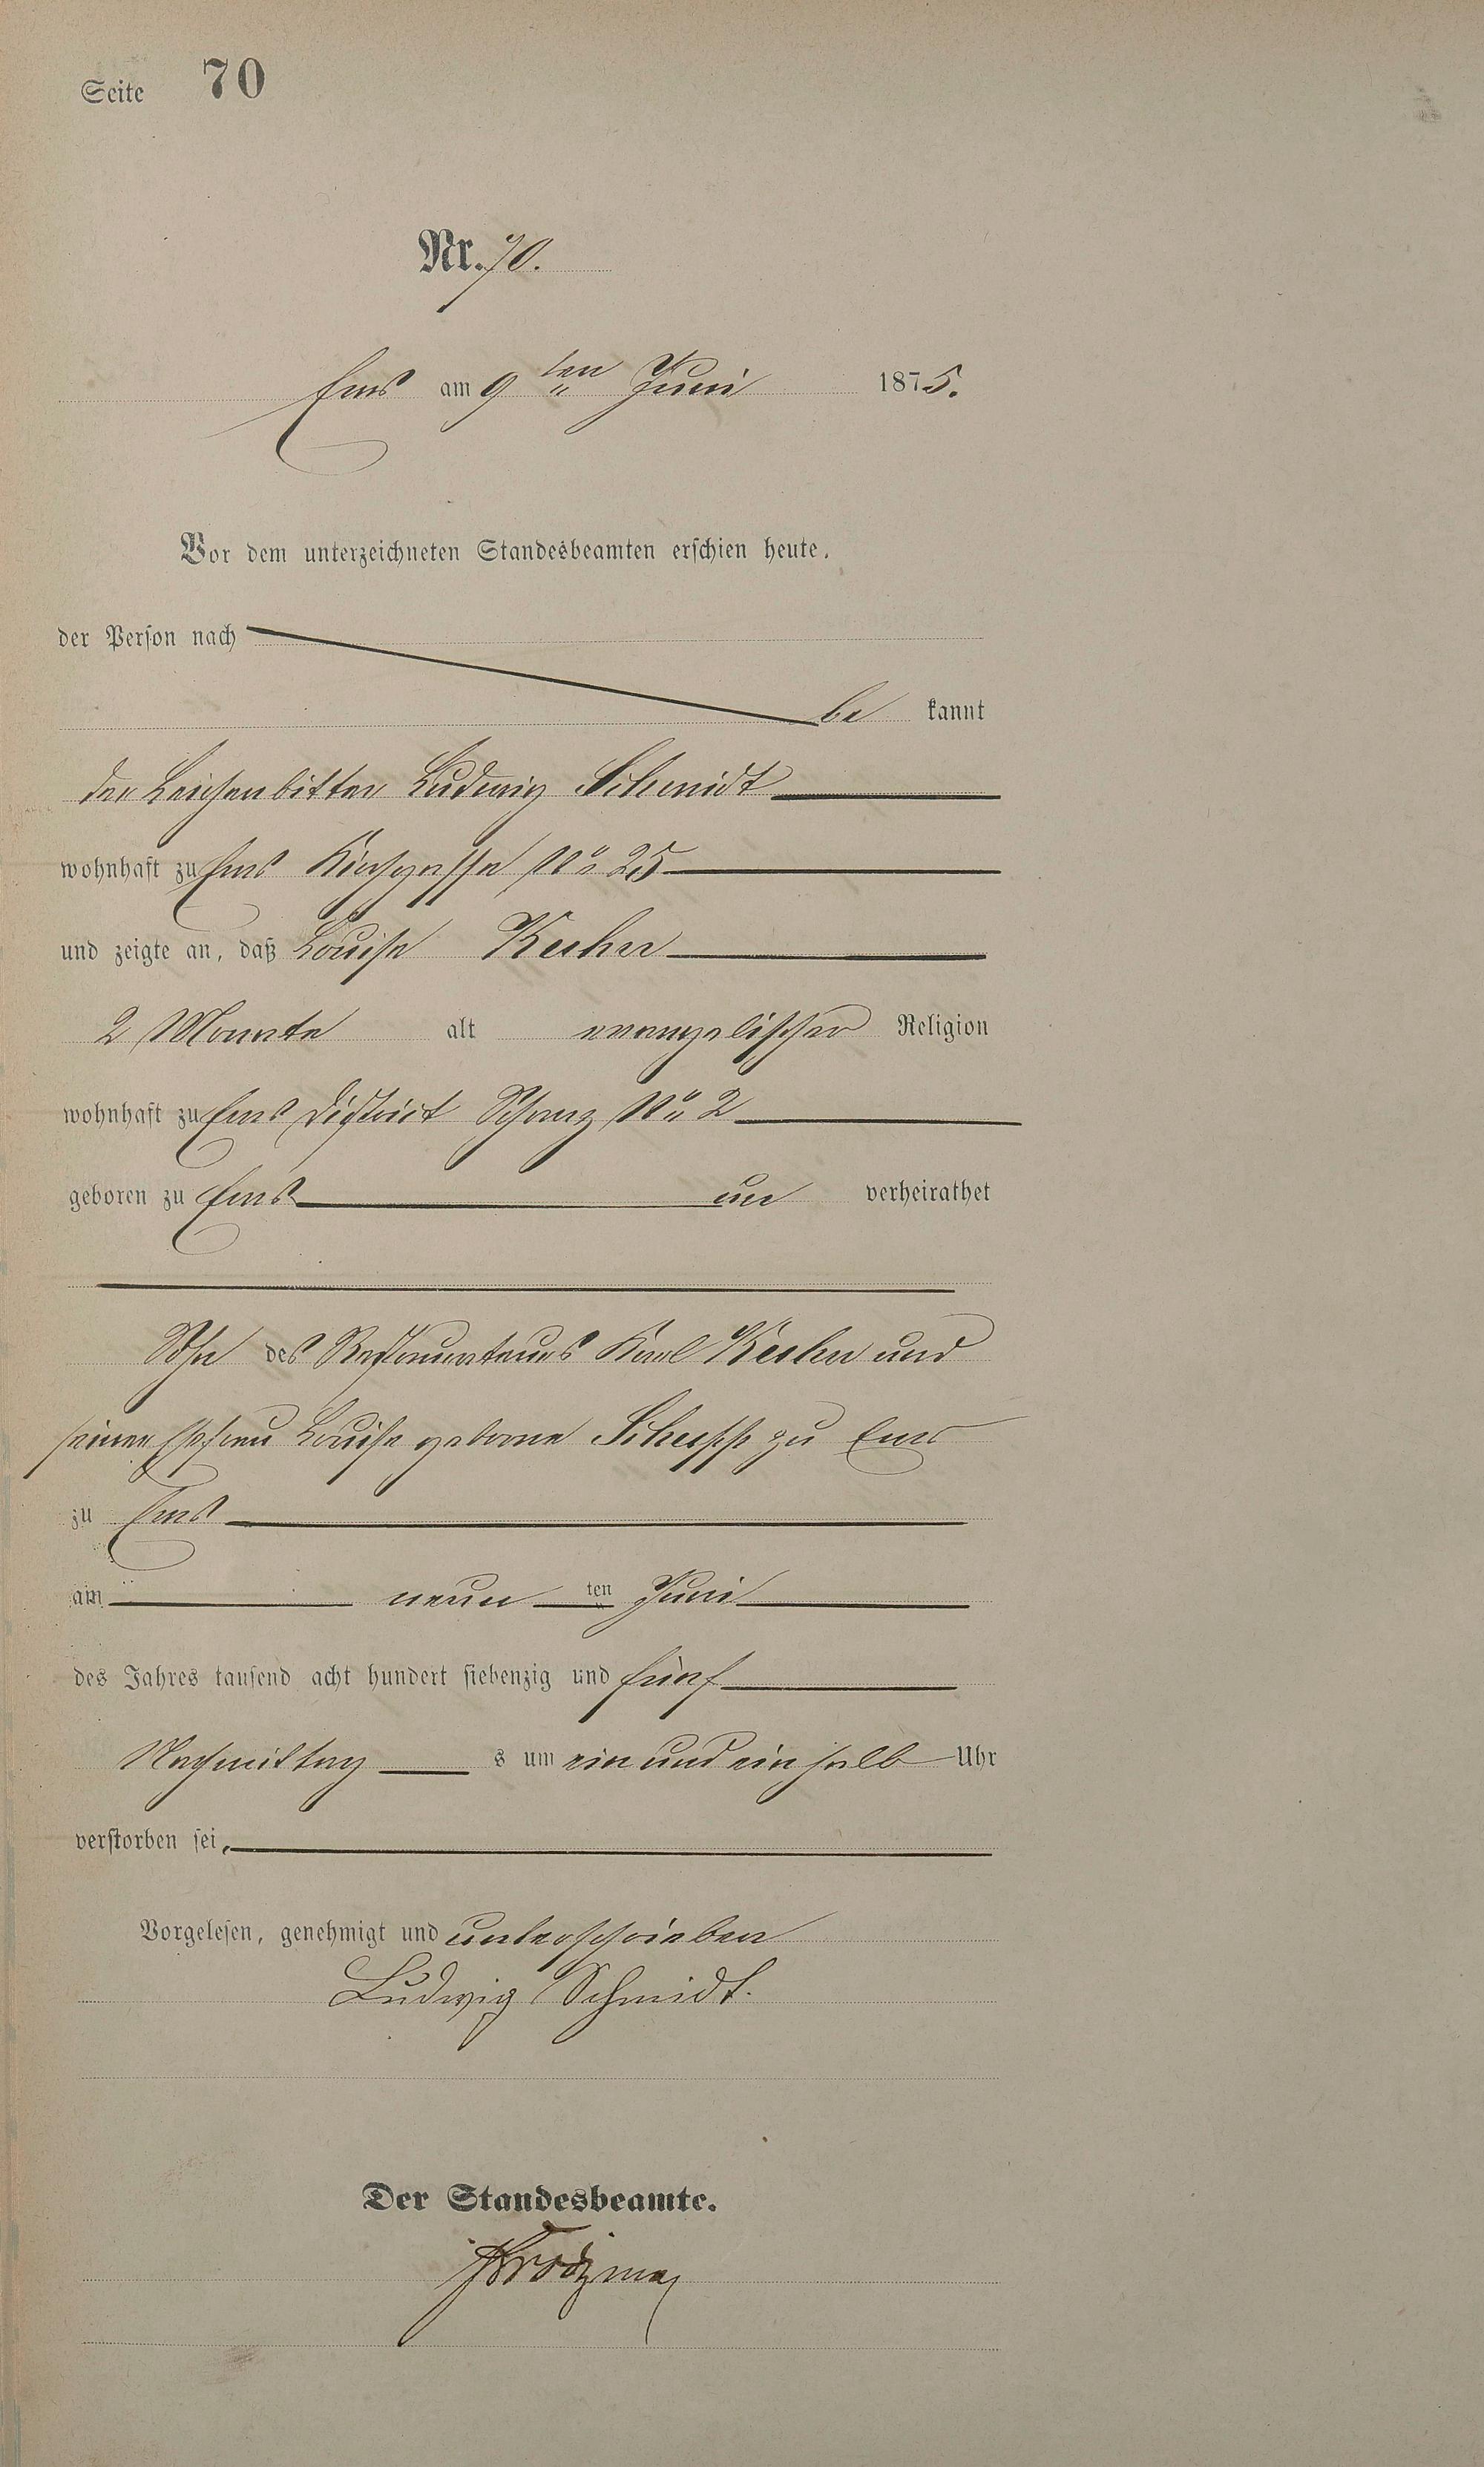 Seite 70
Nr. 70.
Ems am 9ten Juni 1875.
Vor dem unterzeichneten Standesbeamten erschien heute,
der Person nach
be kannt
der Leichenbitter Ludwig Schmidt
wohnhaft zu Ems Kirchgasse No 25
und zeigte an, daß Louise Kuhn
2 Monate alt evangelischer Religion
wohnhaft zu Ems District Schanz No 2
geboren zu Ems un verheirathet
Sohn des Restaurateurs Karl Kuhn und
seiner Ehefrau Louise geborne Schupp zu Ems
zu Ems
am neun ten Juni
des Jahres tausend acht hundert siebenzig und fünf
Nachmittag s um ein und ein halb Uhr
verstorben sei,
Vorgelesen, genehmigt und unterschrieben
Ludwig Schmidt.
Der Standesbeamte.